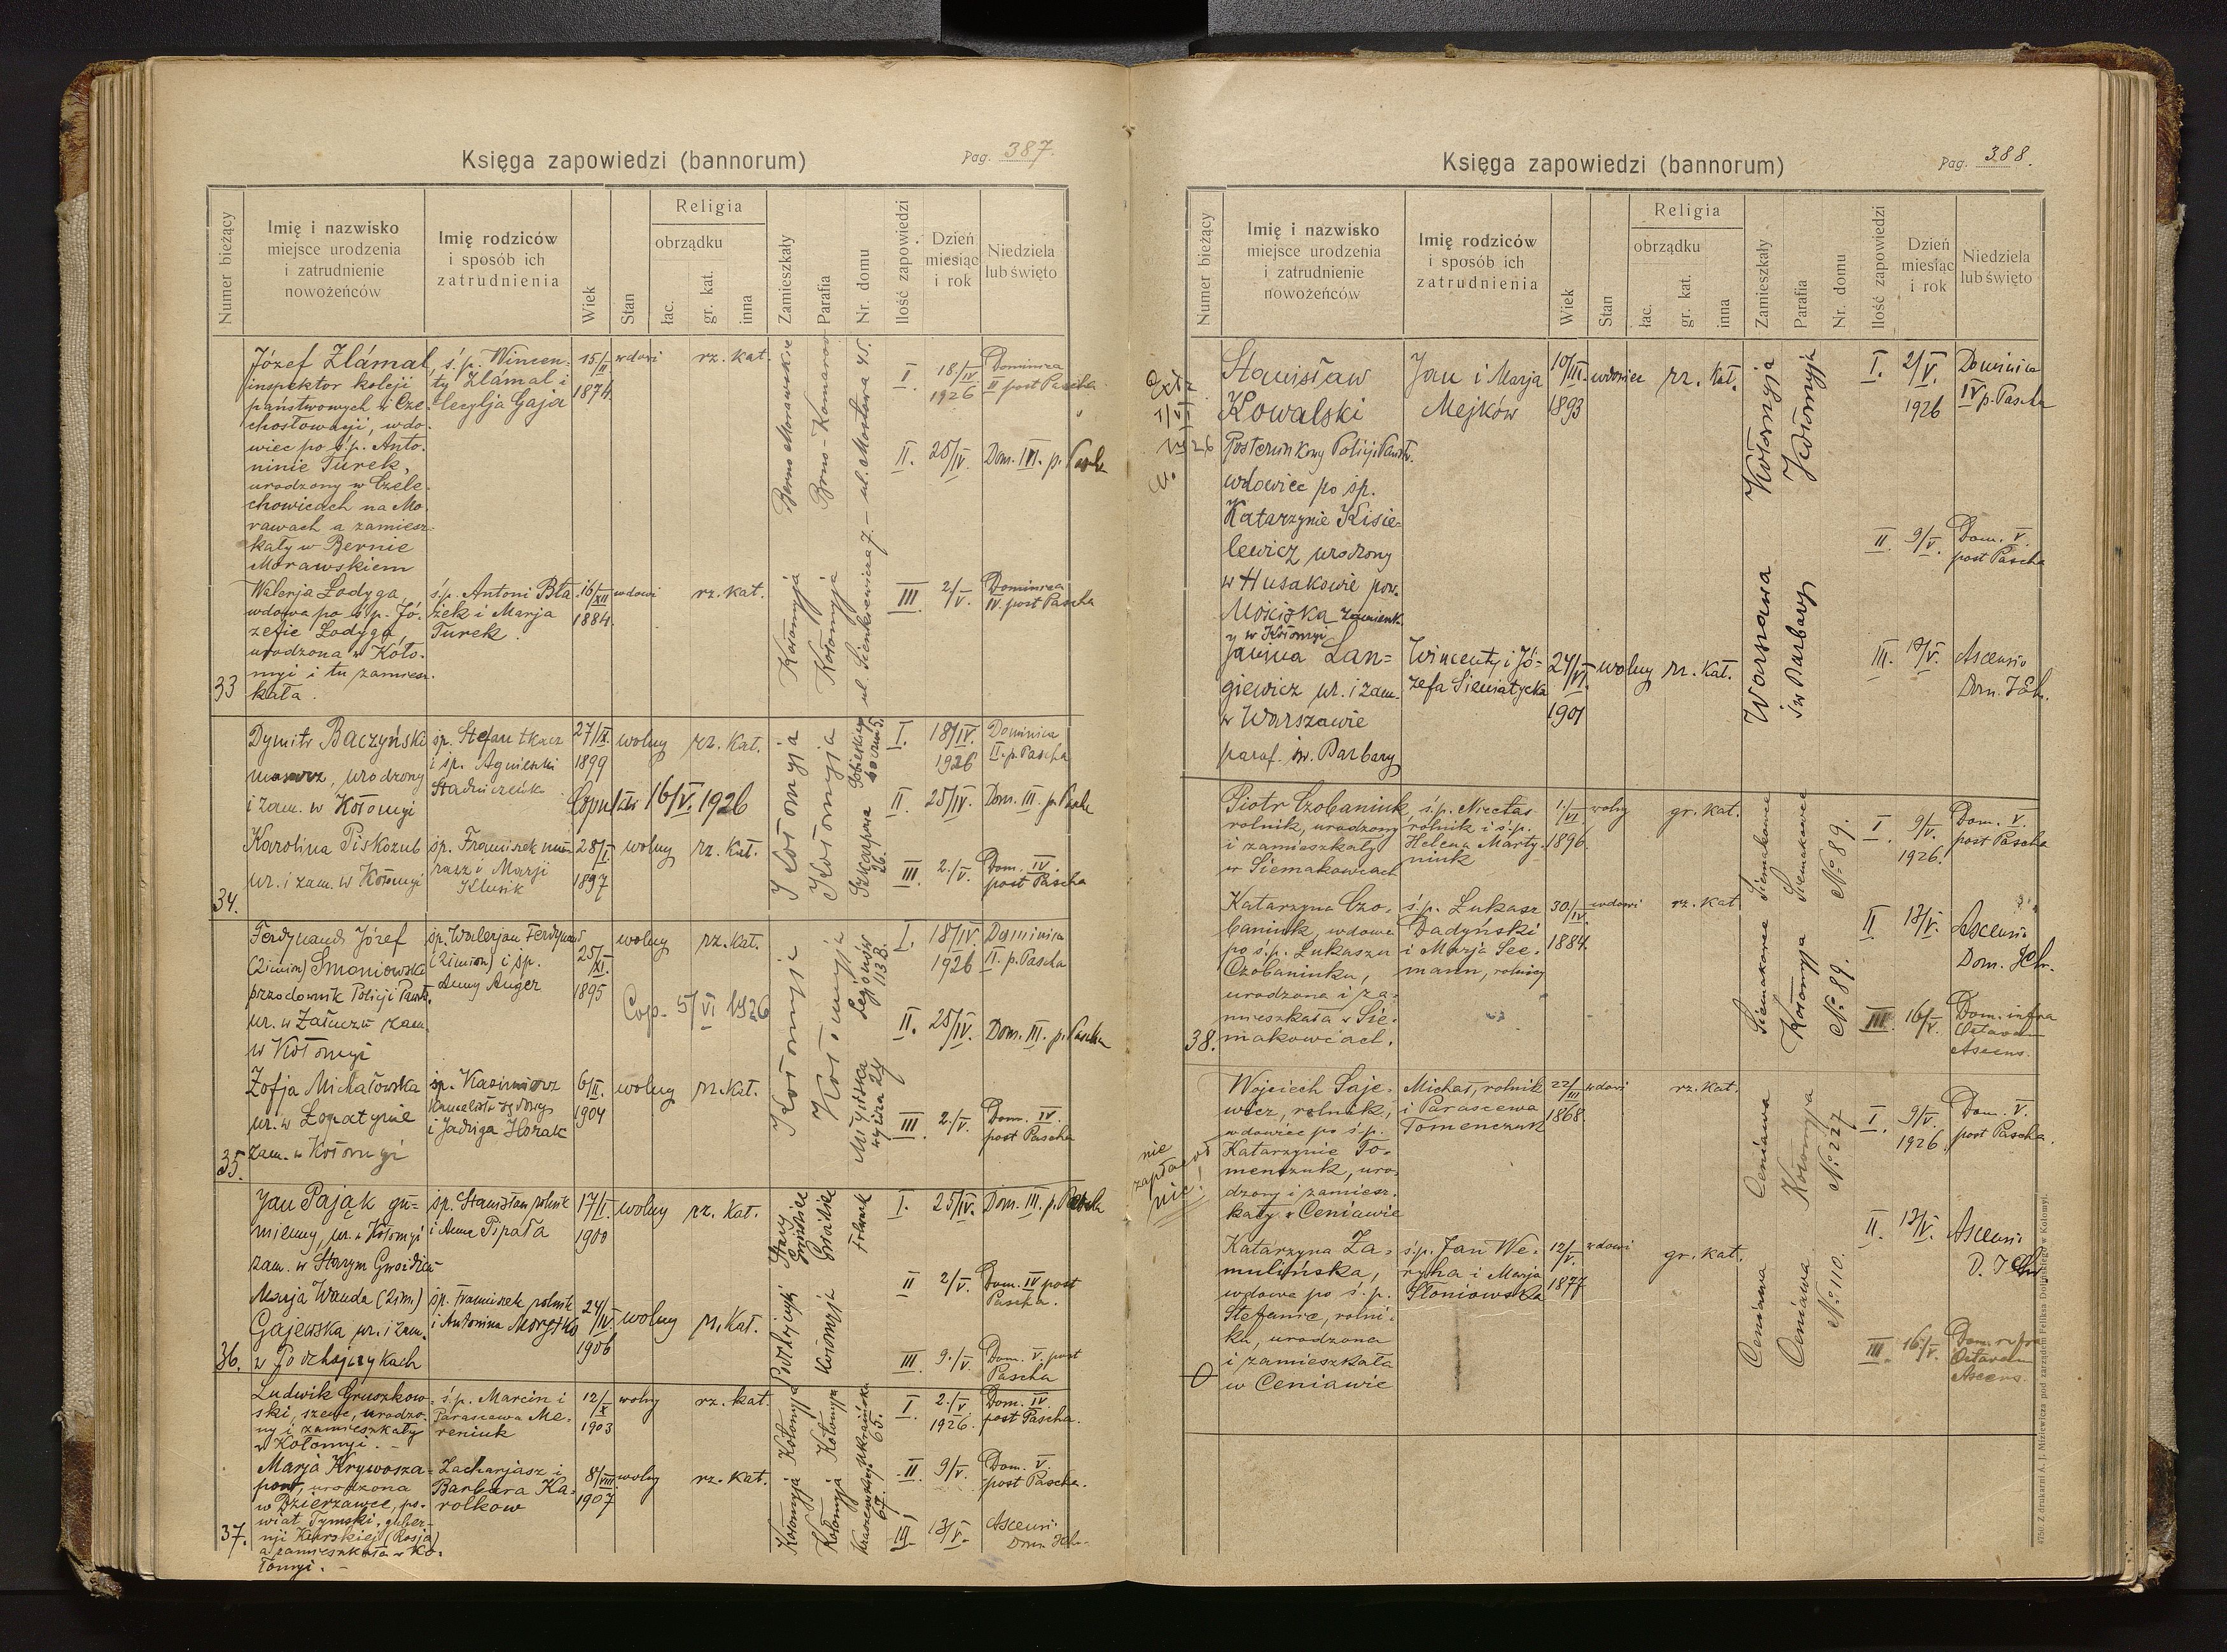 Księga zapowiedzi (bannorum)
Pag. 387.
Numer bieżący
Imię i nazwisko
miejsce urodzenia
i zatrudnienie
nowożeńców
Imię rodziców
i sposób ich
zatrudnienia
Wiek
Stan
Religia
obrządku
łac.
gr. kat.
inna
Zamieszkały
Parafia
Nr. domu
Ilość zapowiedzi
Dzień
miesiąc
i rok
Niedziela
lub święto
33
Józef Zlámal,
inspektor koleji
państwowych w Cze-
chosłowacji, wdo-
wiec po ś.p. Anto-
ninie Turek,
urodzony w Czele-
chowicach na Mo-
rawach a zamiesz-
kały w Bernie
Morawskiem
ś.p. Wincen-
ty Zlámal i
Cecylja Gaja
15/II
1874.
wdowi
rz. kat.
Berno Morawskie
Brno-Komarov
ul. Mostova 45.
I
18/IV
1926
Dominica
II post Pascha
II.
25/IV.
Dom. III. p. Pascha
Walerja Łodyga,
wdowa po ś.p. Jó-
zefie Łodygo,
urodzona w Koło-
myi i tu zamiesz-
kała.
ś.p. Antoni Bła-
żek i Marja
Turek.
16/XII
1884.
wdowi
rz. kat.
Kołomyja
Kołomyja
ul. Sienkiewicza 7.
III
2/V.
Dominica
IV. post Pascha
34.
Dymitr Baczyński
murarz, urodzony
i zam. w Kołomyi
śp. Stefan tkacz
i śp. Agnieszki
27/IX.
1899
wolny
rz. Kat.
Copulati 16/V. 1926
Kołomyja
Kołomyja
Sobieskiego
I.
18/IV.
1926
Dominica
II. p. Pascha
II
25/IV.
Dom. III. p. Pascha
Karolina Piskozub
ur. i zam. w Kołomyi
śp. Franciszek mu-
rarz i Marji
Klusik
28/I.
1897
wolny
rz. Kat.
26.
III.
2./V.
Dom. IV.
post Pascha
35.
Ferdynand Józef
(2 imion) Smoniowski
przodownik Policji Państ.
ur. w Załuczu zam.
w Kołomyi
śp. Walerjan Ferdynand
(2 imion) i śp.
Anny Auger
25/XI.
1895
wolny
rz. kat.
Cop. 5/VI 1926
Kołomyja
Kołomyja
Legjonów
113 B.
I.
18/IV.
1926
Dominica
II. p. Pascha
II.
25/IV.
Dom. III. p. Pascha
Zofja Michałowska
ur. w Łopatynie
zam. w Kołomyi
śp. Kazimierz
i Jadwiga Horak
6/II.
1904
wolny
rz. kat.
Młyńska
wyższa 24
III.
2./V.
Dom. IV.
post Pascha
36.
Jan Pająk gu-
mienny, ur. w Kołomyi
zam. w Starym Gwoźdźcu
śp. Stanisław rolnik
i Anna Pipała
17/I.
1900
wolny
rz. Kat.
Stary
Folwark
I.
25/IV.
Dom. III. p. Pascha
II
2/V.
Dom. IV post
Pascha.
Marja Wanda (2 im.)
Gajewska ur. i zam.
w Podhajczykach
śp. Franciszek rolnik
i Antonina
24/IV.
1906
wolny
rz. Kat.
Podhajczyki
Kołomyja
III.
9./V.
Dom. V. post
Pascha
37.
Ludwik Gruszkow-
ski, szewc, urodzo-
ny i zamieszkały
w Kołomyi.
ś.p. Marcin i
Parascewa Me-
reniuk
12/X
1903
wolny
rz. kat.
Kołomyja
Kołomyja
Ukraińska
65.
I.
2./V.
1926.
Dom. IV
post Pascha.
II.
9/V.
Dom. V.
post Pascha.
Marja Krywosza-
pow, urodzona
w Dzierżawce, po-
wiat Tymski, guber-
nji Kurskiej (Rosja)
a zamieszkała w Ko-
łomyi.
Zacharjasz i
Barbara Ka-
rolkow
8/VIII
1907
wolny
rz. kat.
Kołomyja
Kołomyja
Kraszewskiego
67.
III.
13/V.
Ascensi
Dom.
Księga zapowiedzi (bannorum)
Pag. 388.
Numer bieżący
Imię i nazwisko
miejsce urodzenia
i zatrudnienie
nowożeńców
Imię rodziców
i sposób ich
zatrudnienia
Wiek
Stan
Religia
obrządku
łac.
gr. kat.
inna
Zamieszkały
Parafia
Nr. domu
Ilość zapowiedzi
Dzień
miesiąc
i rok
Niedziela
lub święto
Stanisław
Kowalski
Posterunkowy Policji Państw.
wdowiec po śp.
Katarzynie Kisie-
lewicz urodzony
w Husakowie pow.
Mościska zamieszk.
y w Kołomyi
Jan i Marja
Mejków
10/III.
1893
wdowiec
rz. Kat.
Kołomyja
Kołomyja
I.
2/V.
1926
Dominica
IV p. Pascha
II.
9/V.
Dom. V.
post Pascha
Janina Lan-
giewicz ur. i zam.
w Warszawie
paraf. św. Barbary
Wincenty i Jó-
zefa Siemiatycka
24/VI.
1901
wolny
rz. Kat.
Warszawa
św Barbary
III.
13/V.
Ascensio
Dom.
38.
Piotr Czobaniuk,
rolnik, urodzony
i zamieszkały
w Siemakowcach
ś.p. Nicetas
rolnik i ś.p.
Helena Marty-
niuk
1./VI.
1896
wolny
gr. kat.
Siemakowce
Siemakowce
No 89.
I
9/V.
1926.
Dom. V.
post Pascha
Katarzyna Czo-
baniuk, wdowa
po ś.p. Łukaszu
Czobaniuku,
urodzona i za-
mieszkała w Sie-
makowcach.
ś.p. Łukasz
Dadyński
i Marja See-
mann, rolnicy
30./IV.
1884.
wdowi
rz. kat
Siemakowce
Kołomyja
No 89.
II
13/V.
Ascensi
Dom.
III.
16/V.
Dom. infra
Octavam
Ascens.
nie
zapłacił
nic!
Wojciech Saje-
wicz, rolnik,
wdowiec po ś.p.
Katarzynie To-
menczuk, uro-
dzony i zamiesz-
kały w Ceniawie
Michał, rolnik
i Parascewa
Tomenczuk
22/III
1868.
wdowi
rz. kat.
Ceniawa
Kołomyja
No 227
I.
9/V.
1926.
Dom. V.
post Pascha.
II.
13/V.
Ascensi
Katarzyna Za-
mulińska,
wdowa po ś.p.
Stefanie, rolni-
ku, urodzona
i zamieszkała
w Ceniawie
ś.p. Jan We-
ryha i Marja
Słoniowska
12/V.
1877
wdowi
gr. kat.
Ceniawa
Ceniawa
No 110.
III.
16./V.
Dom. infra
Octavam
Ascens.
4750. Z drukarni A. J. Miziewicza pod zarządem Feliksa Dolińskiego w Kołomyi.